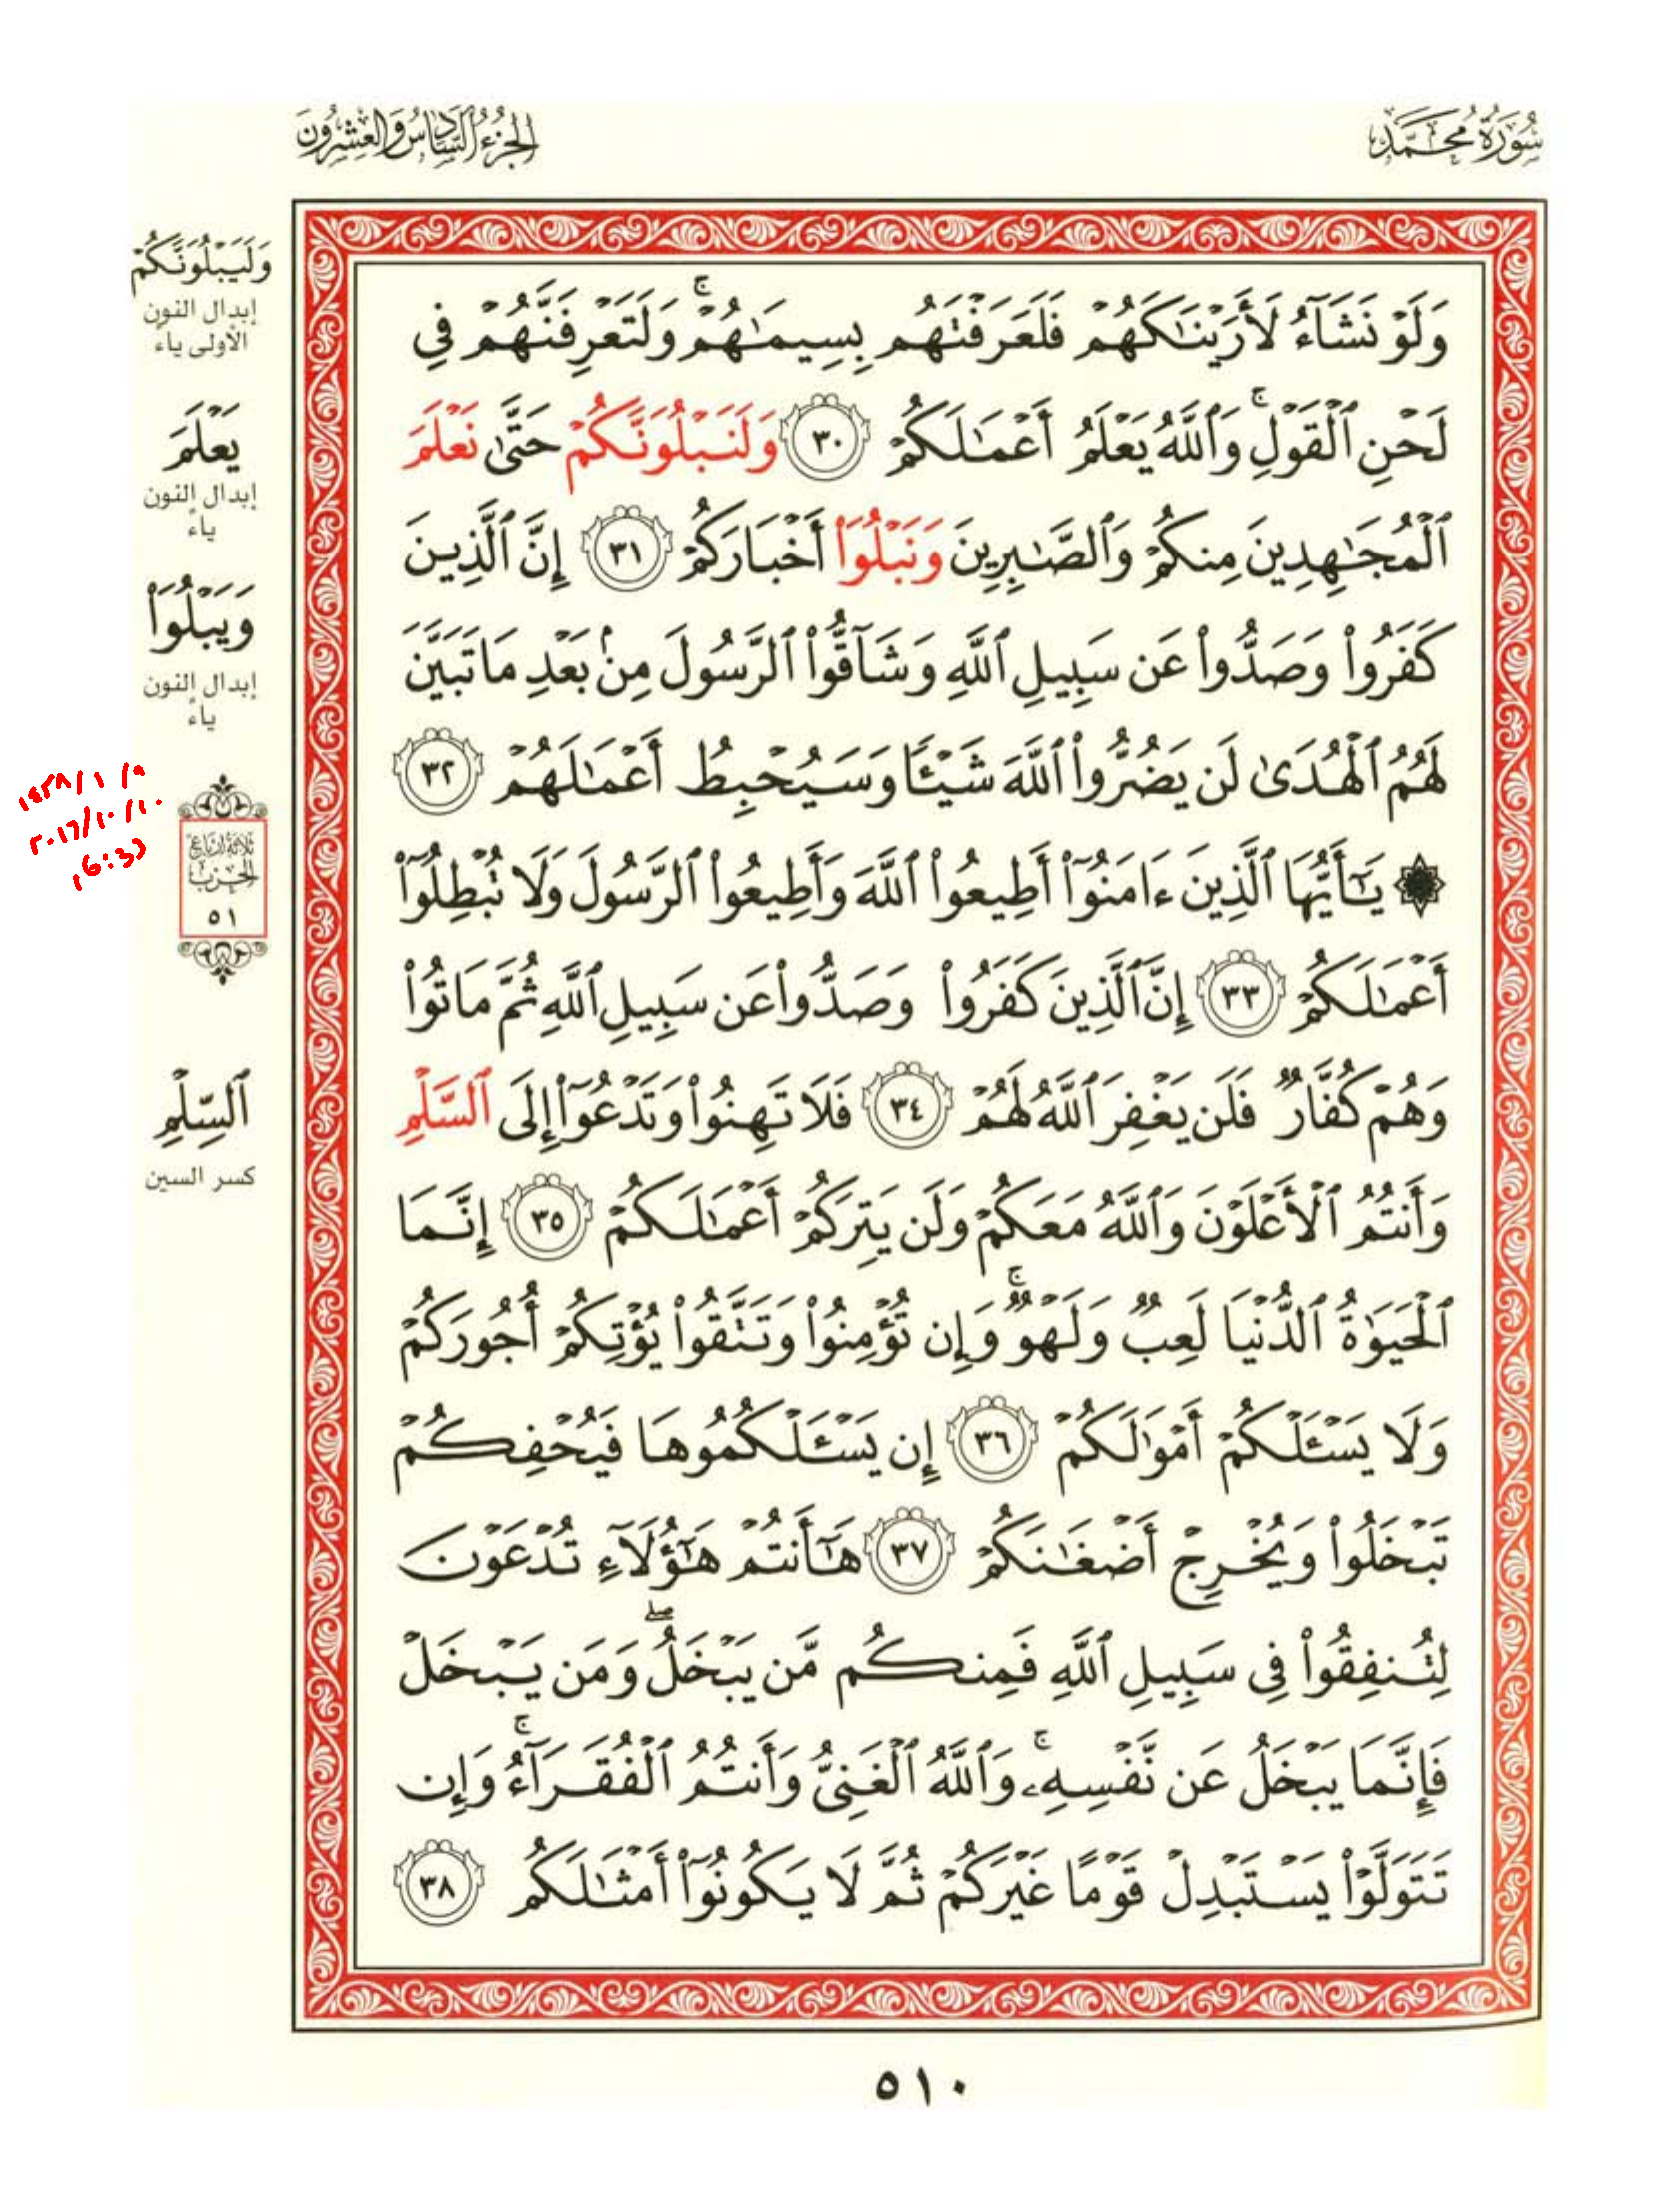 سُورَةُ مُحَمَّد
الجُزْءُ السَّادِسُ وَالعِشْرُونَ
وَلَوْ نَشَآءُ لَأَرَيْنَٰكَهُمْ فَلَعَرَفْتَهُم بِسِيمَٰهُمْ ۚ وَلَتَعْرِفَنَّهُمْ فِي
لَحْنِ ٱلْقَوْلِ ۚ وَٱللَّهُ يَعْلَمُ أَعْمَٰلَكُمْ ٣٠ وَلَنَبْلُوَنَّكُمْ حَتَّىٰ نَعْلَمَ
ٱلْمُجَٰهِدِينَ مِنكُمْ وَٱلصَّٰبِرِينَ وَنَبْلُوَا۟ أَخْبَارَكُمْ ٣١ إِنَّ ٱلَّذِينَ
كَفَرُوا۟ وَصَدُّوا۟ عَن سَبِيلِ ٱللَّهِ وَشَآقُّوا۟ ٱلرَّسُولَ مِنۢ بَعْدِ مَا تَبَيَّنَ
لَهُمُ ٱلْهُدَىٰ لَن يَضُرُّوا۟ ٱللَّهَ شَيْـًٔا وَسَيُحْبِطُ أَعْمَٰلَهُمْ ٣٢
۞ يَٰٓأَيُّهَا ٱلَّذِينَ ءَامَنُوٓا۟ أَطِيعُوا۟ ٱللَّهَ وَأَطِيعُوا۟ ٱلرَّسُولَ وَلَا تُبْطِلُوٓا۟
أَعْمَٰلَكُمْ ٣٣ إِنَّ ٱلَّذِينَ كَفَرُوا۟ وَصَدُّوا۟ عَن سَبِيلِ ٱللَّهِ ثُمَّ مَاتُوا۟
وَهُمْ كُفَّارٌ فَلَن يَغْفِرَ ٱللَّهُ لَهُمْ ٣٤ فَلَا تَهِنُوا۟ وَتَدْعُوٓا۟ إِلَى ٱلسَّلْمِ
وَأَنتُمُ ٱلْأَعْلَوْنَ وَٱللَّهُ مَعَكُمْ وَلَن يَتِرَكُمْ أَعْمَٰلَكُمْ ٣٥ إِنَّمَا
ٱلْحَيَوٰةُ ٱلدُّنْيَا لَعِبٌ وَلَهْوٌ ۚ وَإِن تُؤْمِنُوا۟ وَتَتَّقُوا۟ يُؤْتِكُمْ أُجُورَكُمْ
وَلَا يَسْـَٔلْكُمْ أَمْوَٰلَكُمْ ٣٦ إِن يَسْـَٔلْكُمُوهَا فَيُحْفِكُمْ
تَبْخَلُوا۟ وَيُخْرِجْ أَضْغَٰنَكُمْ ٣٧ هَٰٓأَنتُمْ هَٰٓؤُلَآءِ تُدْعَوْنَ
لِتُنفِقُوا۟ فِي سَبِيلِ ٱللَّهِ فَمِنكُم مَّن يَبْخَلُ ۖ وَمَن يَبْخَلْ
فَإِنَّمَا يَبْخَلُ عَن نَّفْسِهِۦ ۚ وَٱللَّهُ ٱلْغَنِيُّ وَأَنتُمُ ٱلْفُقَرَآءُ ۚ وَإِن
تَتَوَلَّوْا۟ يَسْتَبْدِلْ قَوْمًا غَيْرَكُمْ ثُمَّ لَا يَكُونُوٓا۟ أَمْثَٰلَكُم ٣٨
وَلَيَبْلُوَنَّكُمْ
إبدال النون
الأولى ياءً
يَعْلَمَ
إبدال النون
ياءً
وَيَبْلُوَا۟
إبدال النون
ياءً
١٤٣٨/١/٩
٢٠١٦/١٠/١٠
16:39
ثَلَاثَةُ أَرْبَاعِ
الحِزْبِ
٥١
ٱلسِّلْمِ
كسر السين
٥١٠